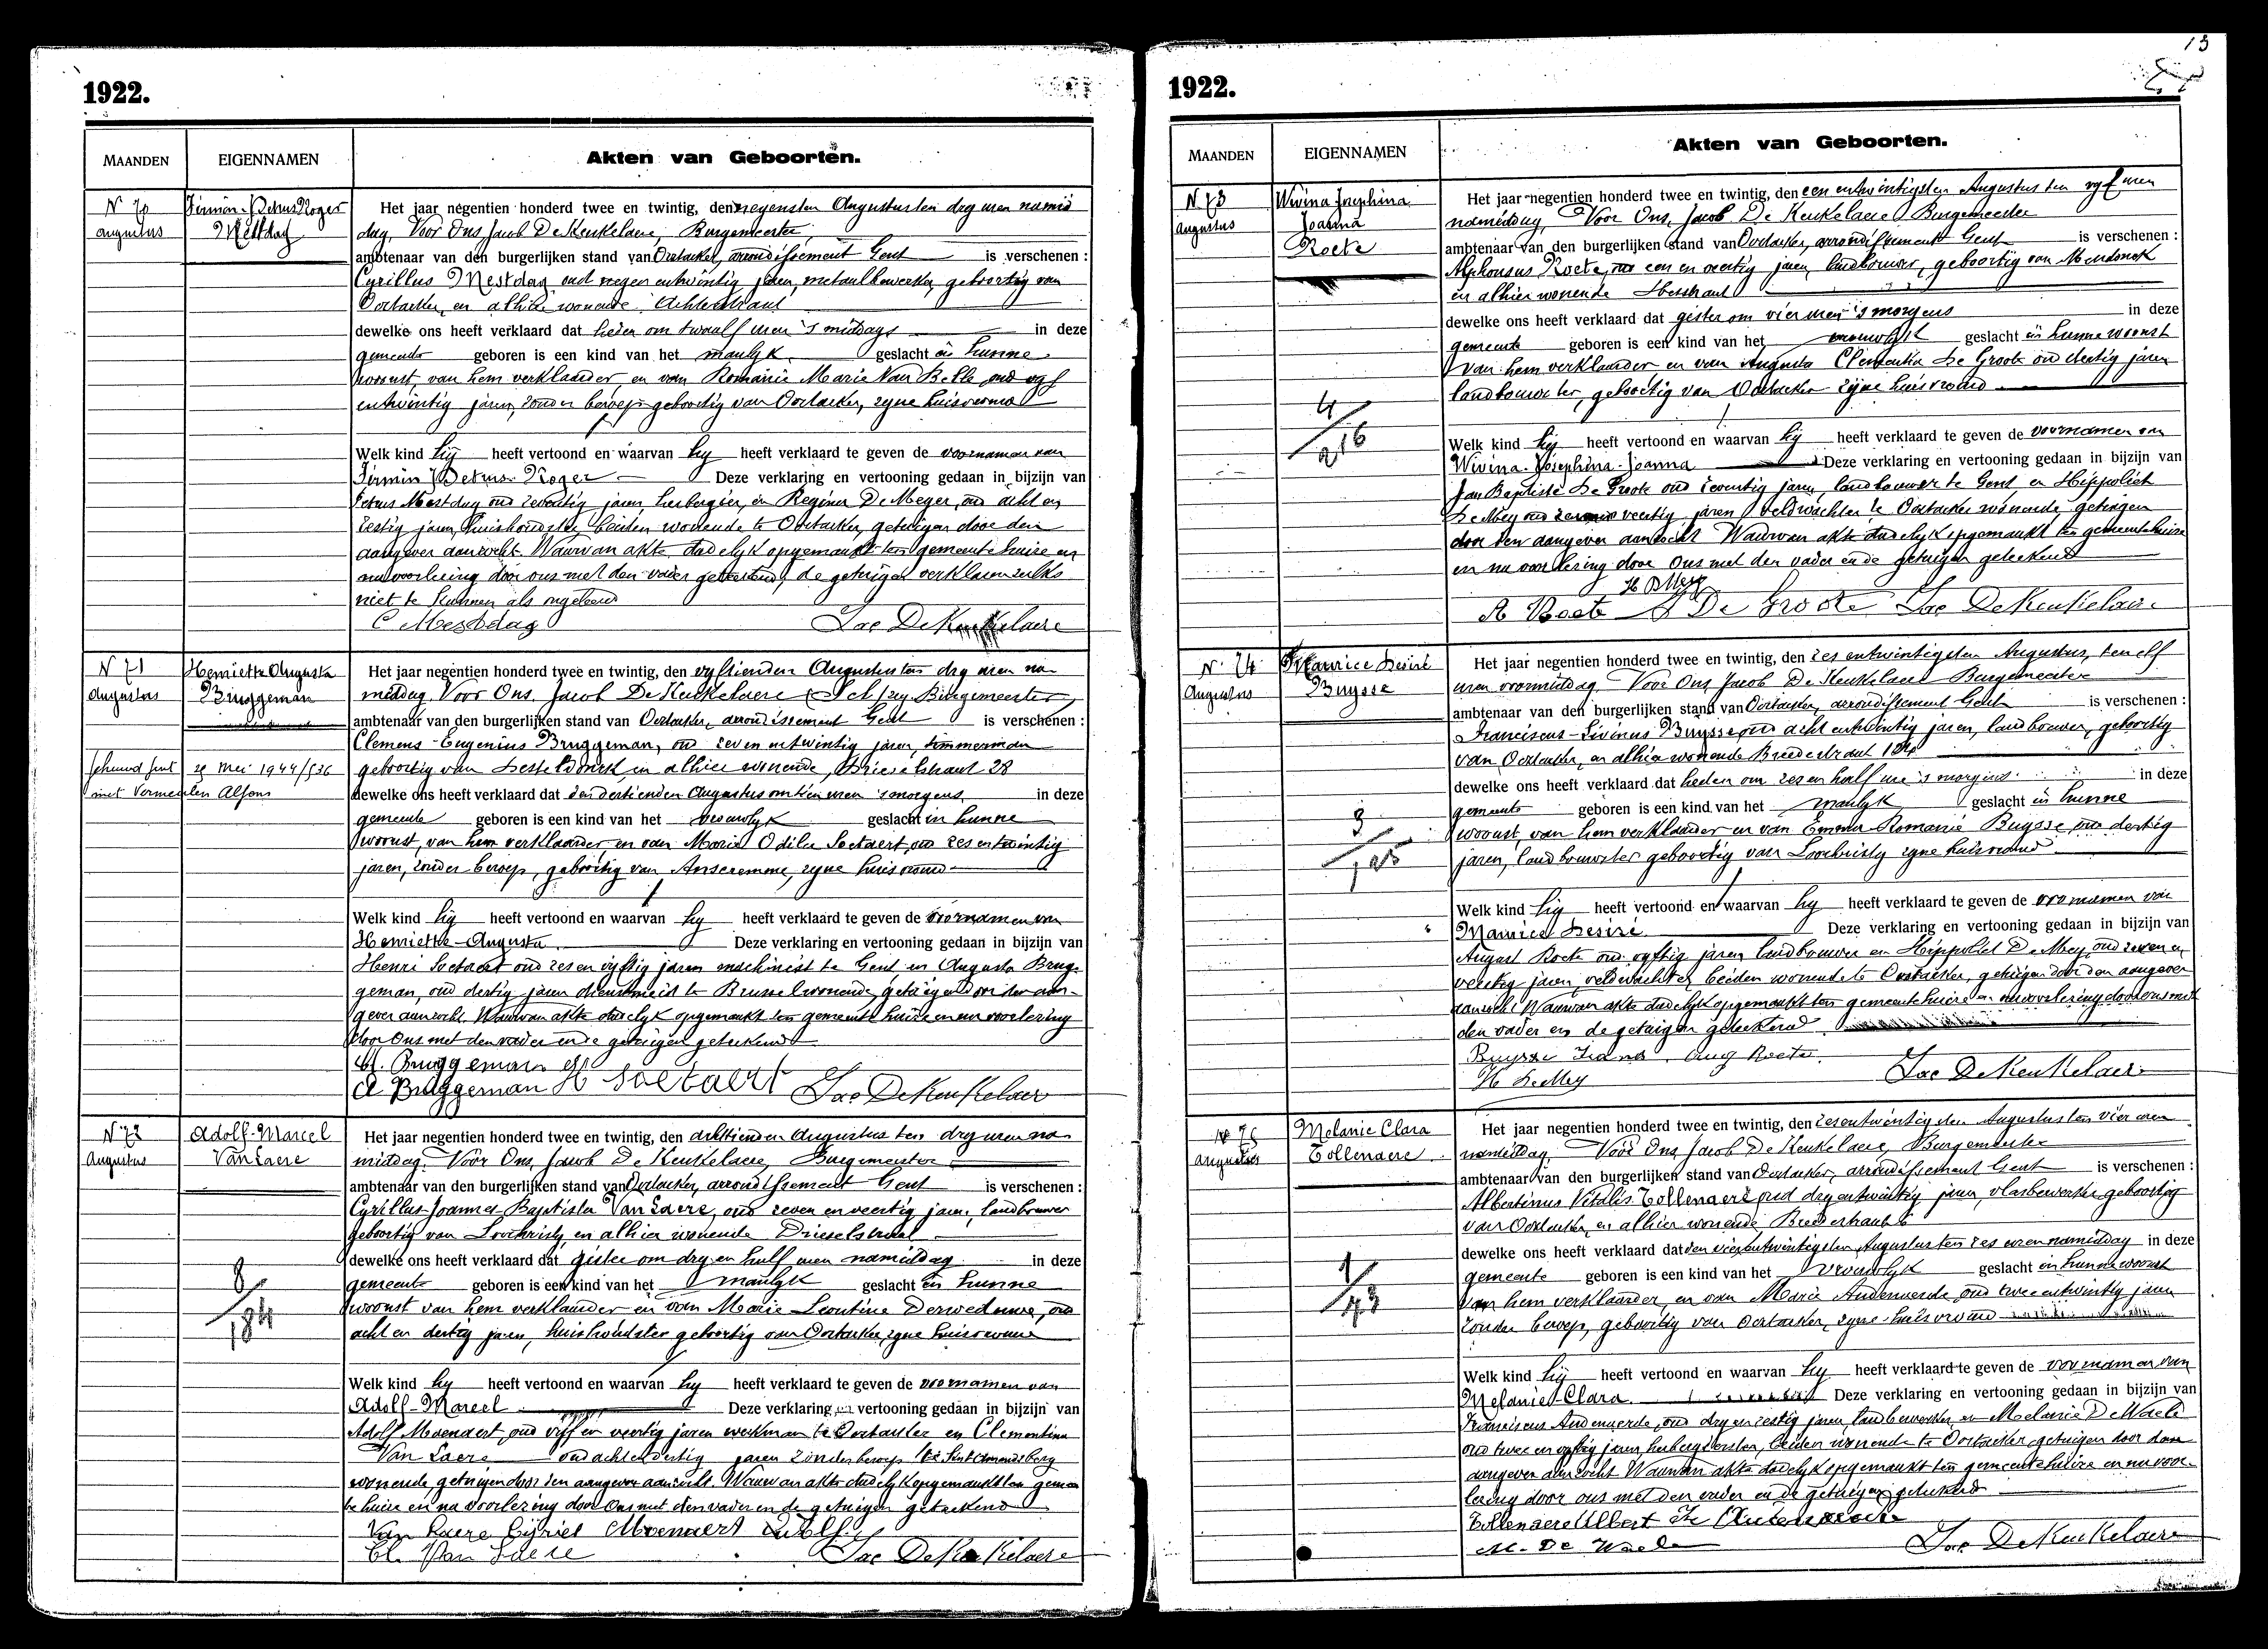 1922.
MAANDEN
EIGENNAMEN
Akten van Geboorten.
N 70
Augustus
Firmin-Petrus Roger
Mestdag
Het jaar negentien honderd twee en twintig, den negensten Augustus ten dry uren namid
dag, Voor Ons, Jacob De Keukelaere, Burgemeester,
ambtenaar van den burgerlijken stand van Oostacker, arrondissement Gent is verschenen :
Cyrillus Mestdag oud negen entwintig jaren, metaalbewerker, geboortig van
Oostacker, en alhier wonende Achterstraat
dewelke ons heeft verklaard dat heden om twaalf uren 's middags in deze
gemeente geboren is een kind van het manlyk geslacht in hunne
woonst, van hem verklaarder, en van Romanie Marie Van Belle oud vyf
entwintig jaren, zonder beroep geboortig van Oostacker, zyne huisvrouw
Welk kind hy heeft vertoond en waarvan hy heeft verklaard te geven de voornamen van
Firmin Petrus Roger Deze verklaring en vertooning gedaan in bijzijn van
Petrus Mestdag oud zeventig jaren, herbergier, en Regina De Meyer, oud acht en
zestig jaren, huishoudster, beiden wonende te Oostacker, getuigen door den
aangever aanzocht. Waarvan akte dadelyk opgemaakt ten gemeente huize en
na voorlezing door ons met den vader geteekend, de getuigen verklaren zulks
niet te kunnen als ongeleerd
C Mestdag
Jac DeKeukelaere
N 71
Augustus
Henriette Augusta
Bruggeman
Gehuwd Gent 29 Mei 1944/536
met Vermeulen Alfons
Het jaar negentien honderd twee en twintig, den vyftienden Augustus ten dry uren na
middag, Voor Ons, Jacob De Keukelaere Burgemeester,
ambtenaar van den burgerlijken stand van Oostacker, arrondissement Gent is verschenen :
Clemens-Eugenius Bruggeman, oud zeven entwintig jaren, timmerman
geboortig van Desteldonck, en alhier wonende, Drieselstraat 28
dewelke ons heeft verklaard dat den dertienden Augustus om tien uren 's morgens, in deze
gemeente geboren is een kind van het vrouwlyk geslacht in hunne
woonst, van hem verklaarder, en van Maria Odilie Soetaert, oud zes entwintig
jaren, zonder beroep, geboortig van Anseremme, zyne huisvrouw
Welk kind hy heeft vertoond en waarvan hy heeft verklaard te geven de voornamen van
Henriette-Augusta Deze verklaring en vertooning gedaan in bijzijn van
Henri Soetaert oud zes en vyftig jaren machinist te Gent en Augusta Brug-
geman, oud dertig jaren dienstmeid te Brussel wonende, getuigen door den aan-
gever aanzocht. Waarvan akte dadelyk opgemaakt ten gemeente huize en na voorlezing
door Ons met den vader en de getuigen geteekend
Cl. Bruggeman
A Bruggeman H Soetaert
Jac DeKeukelaere
N 72
Augustus
Adolf-Marcel
Van Laere
8/184
Het jaar negentien honderd twee en twintig, den achttienden Augustus ten dry uren na
middag. Voor Ons, Jacob De Keukelaere, Burgemeester
ambtenaar van den burgerlijken stand van Oostacker, arrondissement Gent is verschenen :
Cyrillus-Joannes Baptista Van Laere, oud zeven en veertig jaren, landbouwer
geboortig van Loochristy, en alhier wonende Drieselstraat
dewelke ons heeft verklaard dat gister om dry en half uren namiddag in deze
gemeente geboren is een kind van het manlyk geslacht in hunne
woonst van hem verklaarder en van Marie Leontine Derweduwe, oud
acht en dertig jaren, huishoudster geboortig van Oostacker, zyne huisvrouw
Welk kind hy heeft vertoond en waarvan hy heeft verklaard te geven de voornamen van
Adolf-Marcel Deze verklaring en vertooning gedaan in bijzijn van
Adolf Moenaert, oud vyf en veertig jaren werkman te Oostacker en Clementina
Van Laere oud acht en dertig jaren zonder beroep te Sint Amandsberg
wonende, getuigen door den aangever aanzocht. Waarvan akte dadelyk opgemaakt ten gemeen
te huize en na voorlezing door Ons met den vader en de getuigen geteekend
Van Laere Cyriel Moenaert Adolf
Cl. Van Laere
Jac DeKeukelaere
13
1922.
MAANDEN
EIGENNAMEN
Akten van Geboorten.
N 73
Augustus
Wivina Josephina
Joanna
Roete
4/216
Het jaar negentien honderd twee en twintig, den een entwintigsten Augustus ten vyf uren
namiddag, Voor Ons, Jacob De Keukelaere Burgemeester
ambtenaar van den burgerlijken stand van Oostacker, arrondissement Gent is verschenen :
Alphonsus Roete, oud een en veertig jaren, landbouwer, geboortig van Mendonck
en alhier wonende
dewelke ons heeft verklaard dat gister om vier uren 's morgens in deze
gemeente geboren is een kind van het vrouwlyk geslacht in hunne woonst
van hem verklaarder, en van Augusta Clementia De Groote oud dertig jaren
landbouwster, geboortig van Oostacker zyne huisvrouw
Welk kind hy heeft vertoond en waarvan hy heeft verklaard te geven de voornamen van
Wivina-Josephina-Joanna Deze verklaring en vertooning gedaan in bijzijn van
Jan Baptiste De Groote oud zeventig jaren, landbouwer te Gent en Hippoliet
De Mey oud zeven en veertig jaren veldwachter te Oostacker wonende getuigen
door den aangever aanzocht Waarvan akte dadelyk opgemaakt ten gemeentehuize
en na voorlezing door Ons met den vader en de getuigen geteekend
H DMey
A Roete De Groote Jac DeKeukelaere
N. 74
Augustus
Maurice Desiré
Buysse
3/125
Het jaar negentien honderd twee en twintig, den zes entwintigsten Augustus, ten elf
uren voormiddag. Voor Ons Jacob De Keukelaere Burgemeester
ambtenaar van den burgerlijken stand van Oostacker, arrondissement Gent is verschenen :
Franciscus-Livinus Buysse oud acht entwintig jaren, landbouwer, geboortig
van Oostacker, en alhier wonende Breedestraat 124
dewelke ons heeft verklaard dat heden om zes en half ure 's morgens in deze
gemeente geboren is een kind van het manlyk geslacht in hunne
woonst, van hem verklaarder en van Emma-Romanie Buysse, oud dertig
jaren, landbouwster geboortig van Loochristy zyne huisvrouw
Welk kind hy heeft vertoond en waarvan hy heeft verklaard te geven de voornamen van
Maurice Desiré Deze verklaring en vertooning gedaan in bijzijn van
August Roete oud vyftig jaren landbouwer en Hippoliet De Mey, oud zeven en
veertig jaren, veldwachter, beiden wonende te Oostacker, getuigen door den aangever
aanzocht Waarvan akte dadelyk opgemaakt ten gemeentehuize en na voorlezing door ons met
den vader en de getuigen geteekend
Buysse Frans. Aug Roete.
H DeMey
Jac DeKeukelaere
N 75
Augustus
Melanie Clara
Tollenaere
1/43
Het jaar negentien honderd twee en twintig, den zesentwintigsten Augustus ten vier uren
namiddag, Voor Ons, Jacob De Keukelaere, Burgemeester
ambtenaar van den burgerlijken stand van Oostacker, arrondissement Gent is verschenen :
Albertinus Vitalis Tollenaere oud dry entwintig jaren, vlasbewerker geboortig
van Oostacker, en alhier wonende Breedestraat
dewelke ons heeft verklaard dat den vierentwintigsten Augustus ten zes uren namiddag in deze
gemeente geboren is een kind van het vrouwlyk geslacht in hunne woonst
van hem verklaarder, en van Marie Audenaerde, oud twee entwintig jaren
zonder beroep, geboortig van Oostacker, zyne huisvrouw
Welk kind hy heeft vertoond en waarvan hy heeft verklaard te geven de voornamen van
Melanie-Clara Deze verklaring en vertooning gedaan in bijzijn van
Franciscus Audenaerde, oud dry en zestig jaren, landbewerker, en Melanie De Waele
oud twee en vyftig jaren, herbergierster, beiden wonende te Oostacker, getuigen door den
aangever aanzocht Waarvan akte dadelyk opgemaakt ten gemeentehuize en na voor-
lezing door ons met den vader en de getuigen geteekend
Tollenaere Albert Fr Audenaerde
M. De Waele
Jac DeKeukelaere